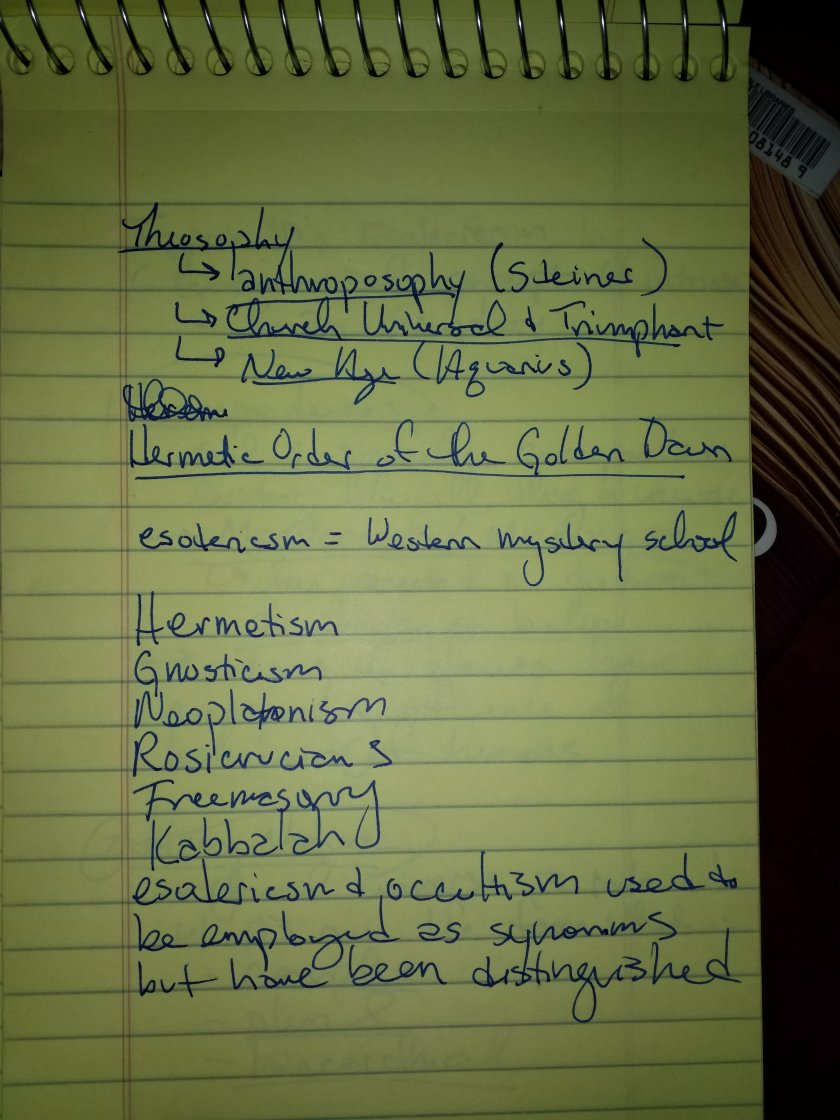 Theosophy
↳ anthroposophy (Steiner)
↳ Church Universal & Triumphant
↳ New Age (Aquarius)
Hermetic Order of the Golden Dawn
esotericsm = Western mystery school
Hermetism
Gnosticism
Neoplatonism
Rosicrucians
Freemasonry
Kabbalah
esotericsm & occultism used to
be employed as synonms
but have been distinguished
08148 9